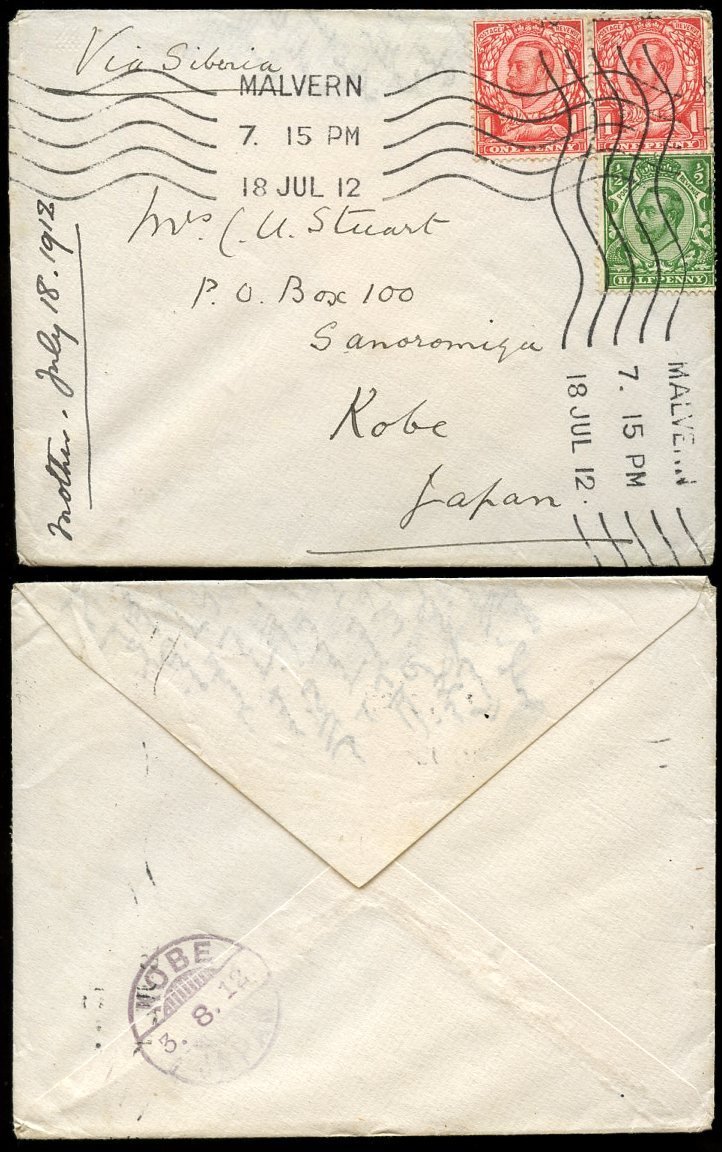 Via Siberia
MALVERN
7. 15 PM
18 JUL 12
POSTAGE REVENUE
1 1
ONE PENNY
POSTAGE REVENUE
1 1
ONE PENNY
HALFPENNY
Mrs. C. U. Stuart
P. O. Box 100
Sanoromiya
Kobe
Japan
Mother. July 18. 1912
MALVERN
7. 15 PM
18 JUL 12
KOBE
3. 8. 12
JAPAN